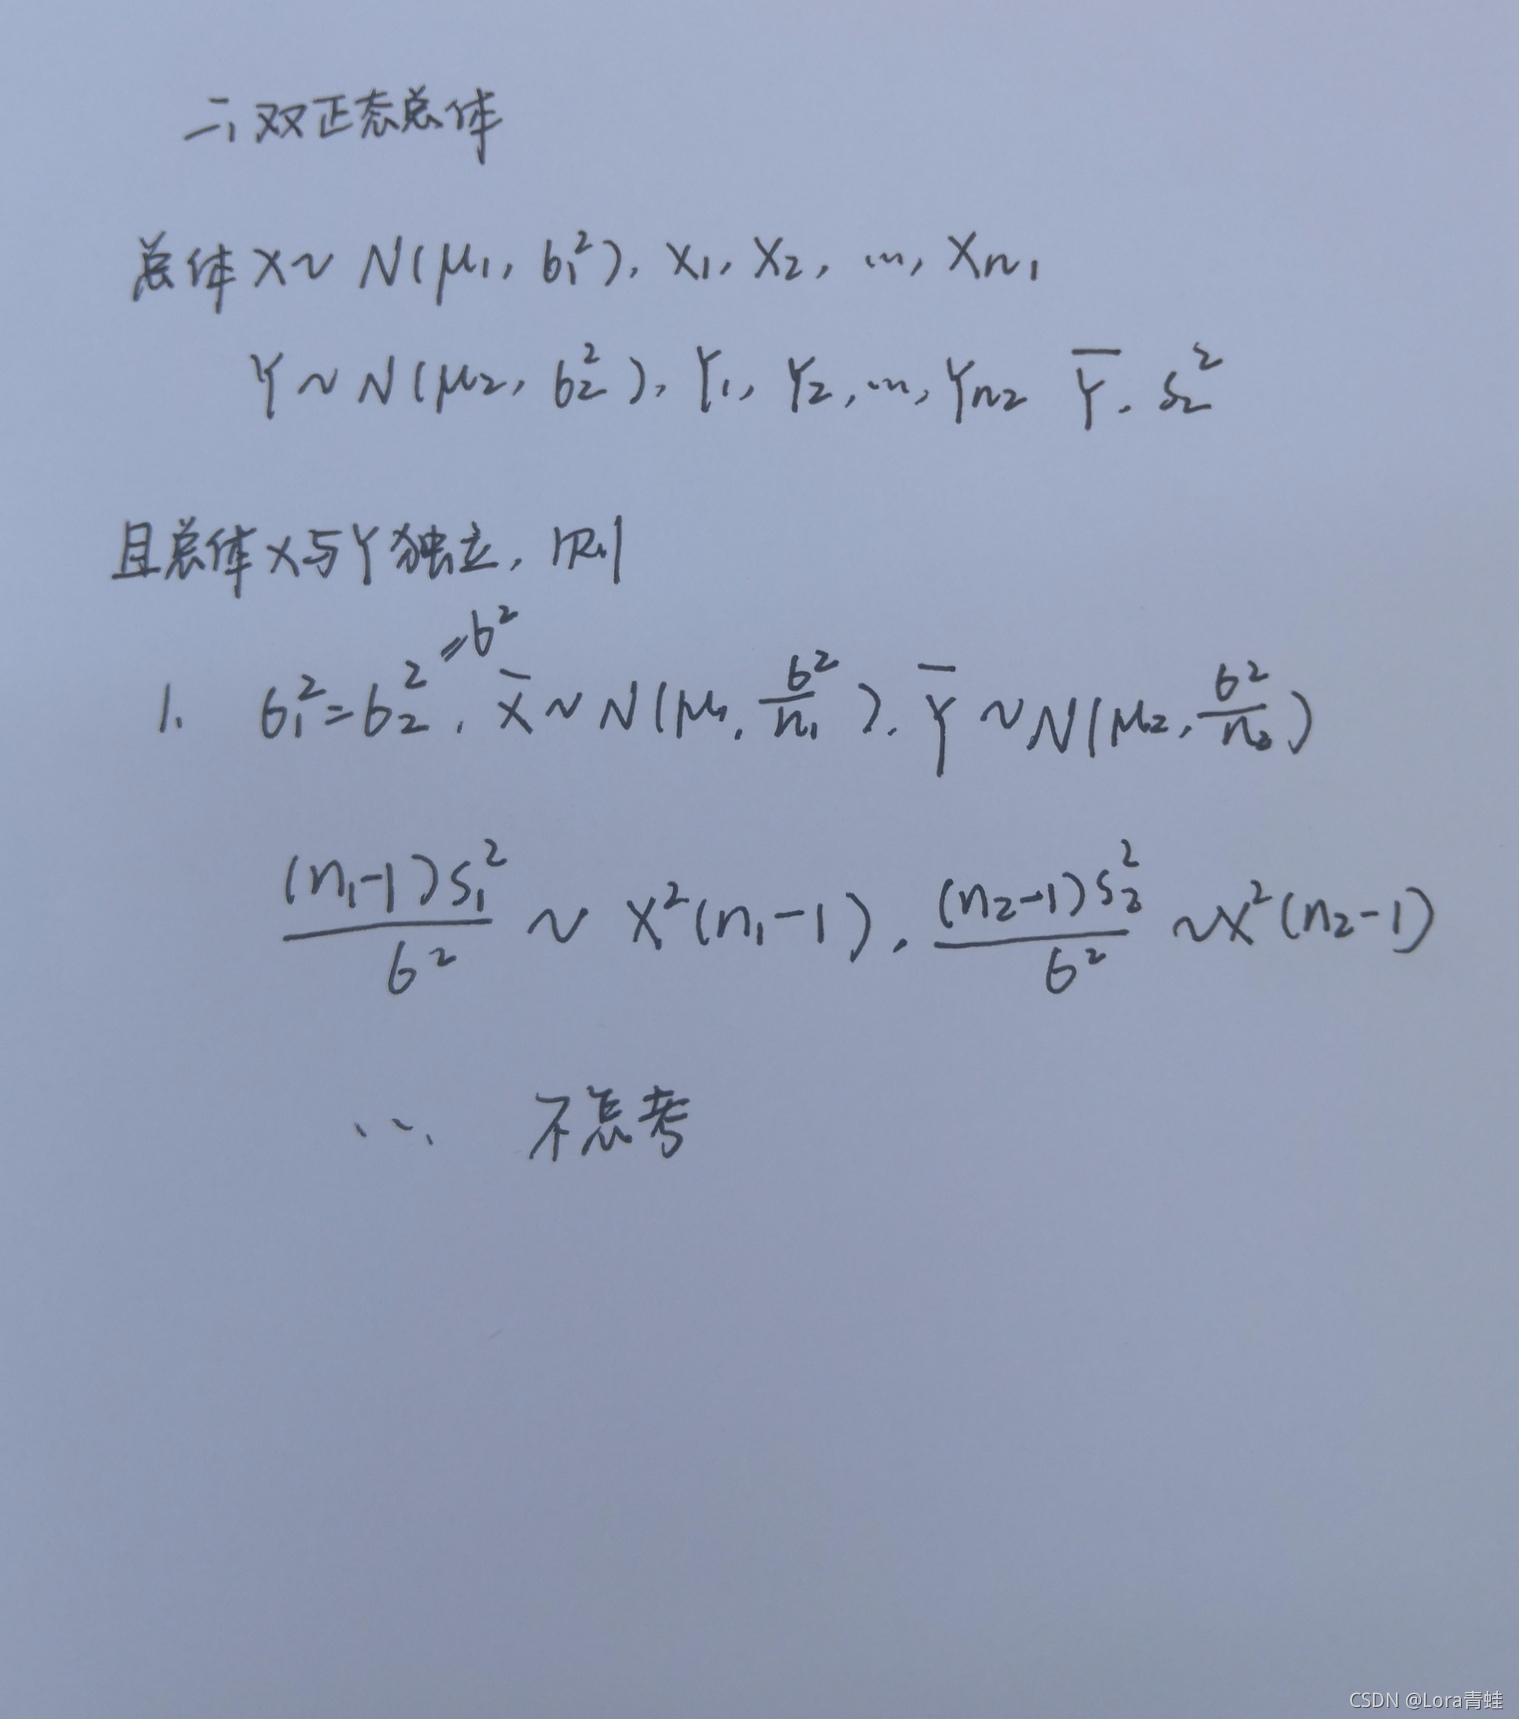 二、双正态总体
总体 X ~ N(μ₁, σ₁²), X₁, X₂, …, Xn₁
Y ~ N(μ₂, σ₂²), Y₁, Y₂, …, Yn₂ Ȳ, S₂²
且总体 X 与 Y 独立, 则
1. σ₁² = σ₂² = σ², X̄ ~ N(μ₁, σ²/n₁), Ȳ ~ N(μ₂, σ²/n₂)
(n₁-1)S₁²/σ² ~ χ²(n₁-1), (n₂-1)S₂²/σ² ~ χ²(n₂-1)
… 不怎考
CSDN @Lora青蛙